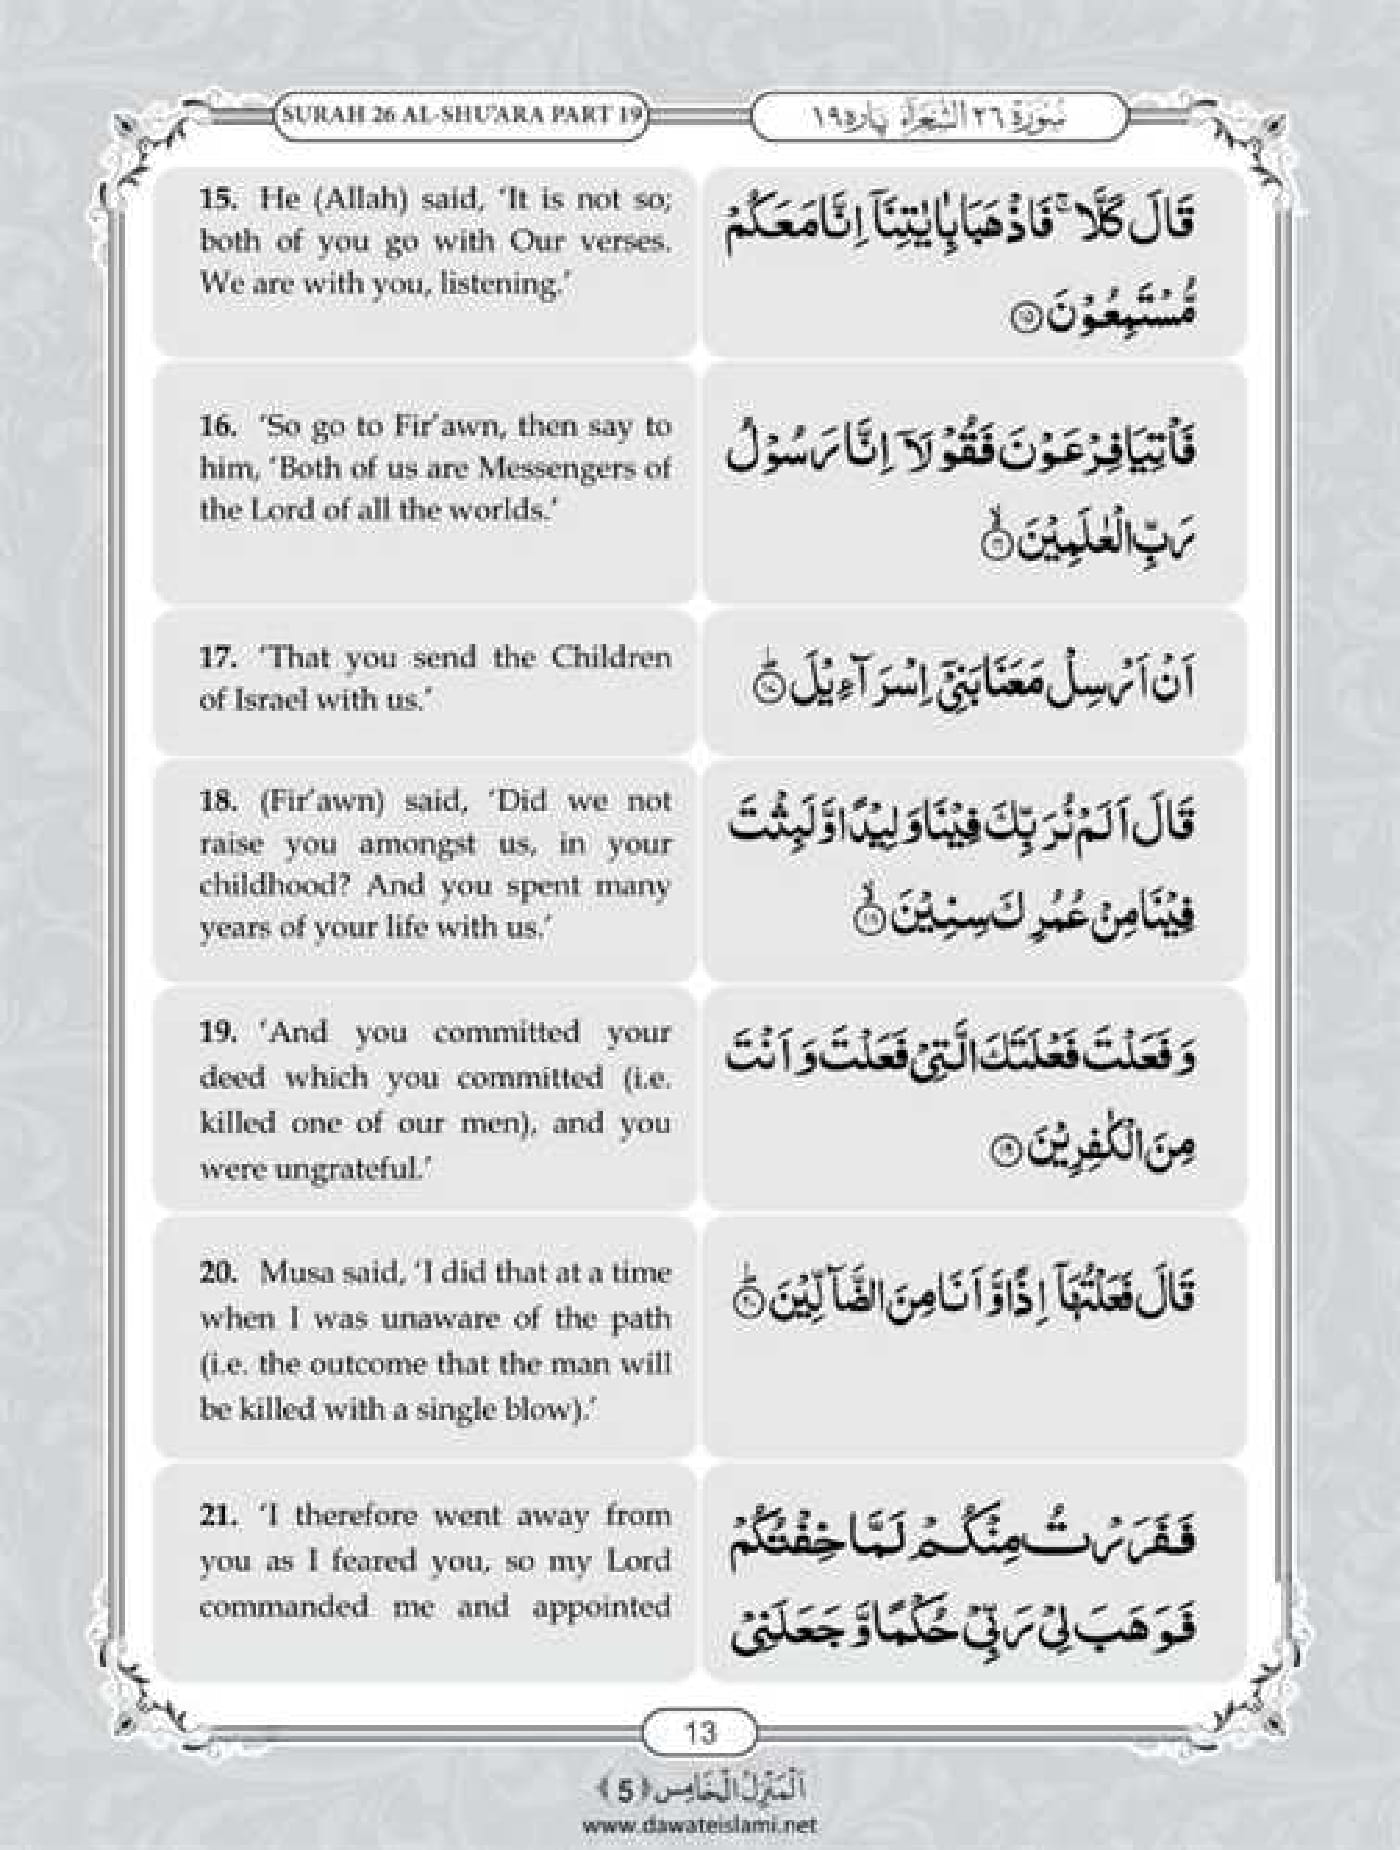 SURAH 26 AL-SHU'ARA PART 19
سُوْرَةُ ٢٦ الشُّعَرَآء پاره ١٩
15. He (Allah) said, ‘It is not so;
both of you go with Our verses.
We are with you, listening.’
قَالَ كَلَّا ۚ فَاذْهَبَا بِاٰيٰتِنَاۤ اِنَّا مَعَكُمْ
مُّسْتَمِعُوْنَ ۝۱۵
16. ‘So go to Fir’awn, then say to
him, ‘Both of us are Messengers of
the Lord of all the worlds.’
فَاْتِيَا فِرْعَوْنَ فَقُوْلَاۤ اِنَّا رَسُوْلُ
رَبِّ الْعٰلَمِيْنَ ۝۱۶ۙ
17. ‘That you send the Children
of Israel with us.’
اَنْ اَرْسِلْ مَعَنَا بَنِيْۤ اِسْرَآءِيْلَ ۝۱۷ؕ
18. (Fir’awn) said, ‘Did we not
raise you amongst us, in your
childhood? And you spent many
years of your life with us.’
قَالَ اَلَمْ نُرَبِّكَ فِيْنَا وَلِيْدًا وَّلَبِثْتَ
فِيْنَا مِنْ عُمُرِكَ سِنِيْنَ ۝۱۸ۙ
19. ‘And you committed your
deed which you committed (i.e.
killed one of our men), and you
were ungrateful.’
وَفَعَلْتَ فَعْلَتَكَ الَّتِيْ فَعَلْتَ وَاَنْتَ
مِنَ الْكٰفِرِيْنَ ۝۱۹
20. Musa said, ‘I did that at a time
when I was unaware of the path
(i.e. the outcome that the man will
be killed with a single blow).’
قَالَ فَعَلْتُهَاۤ اِذًا وَّاَنَا مِنَ الضَّآلِّيْنَ ۝۲۰ؕ
21. ‘I therefore went away from
you as I feared you, so my Lord
commanded me and appointed
فَفَرَرْتُ مِنْكُمْ لَمَّا خِفْتُكُمْ
فَوَهَبَ لِيْ رَبِّيْ حُكْمًا وَّجَعَلَنِيْ
13
اَلْمَنْزِلُ الْخَامِس ﴿5﴾
www.dawateislami.net